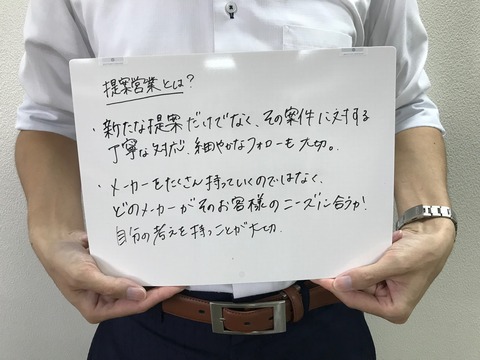 提案営業とは?
・新たな提案だけでなく、その案件に対する
丁寧な対応、細やかなフォローも大切。
・メーカーをたくさん持っていくのではなく、
どのメーカーがそのお客様のニーズに合うか!
自分の考えを持つことが大切.